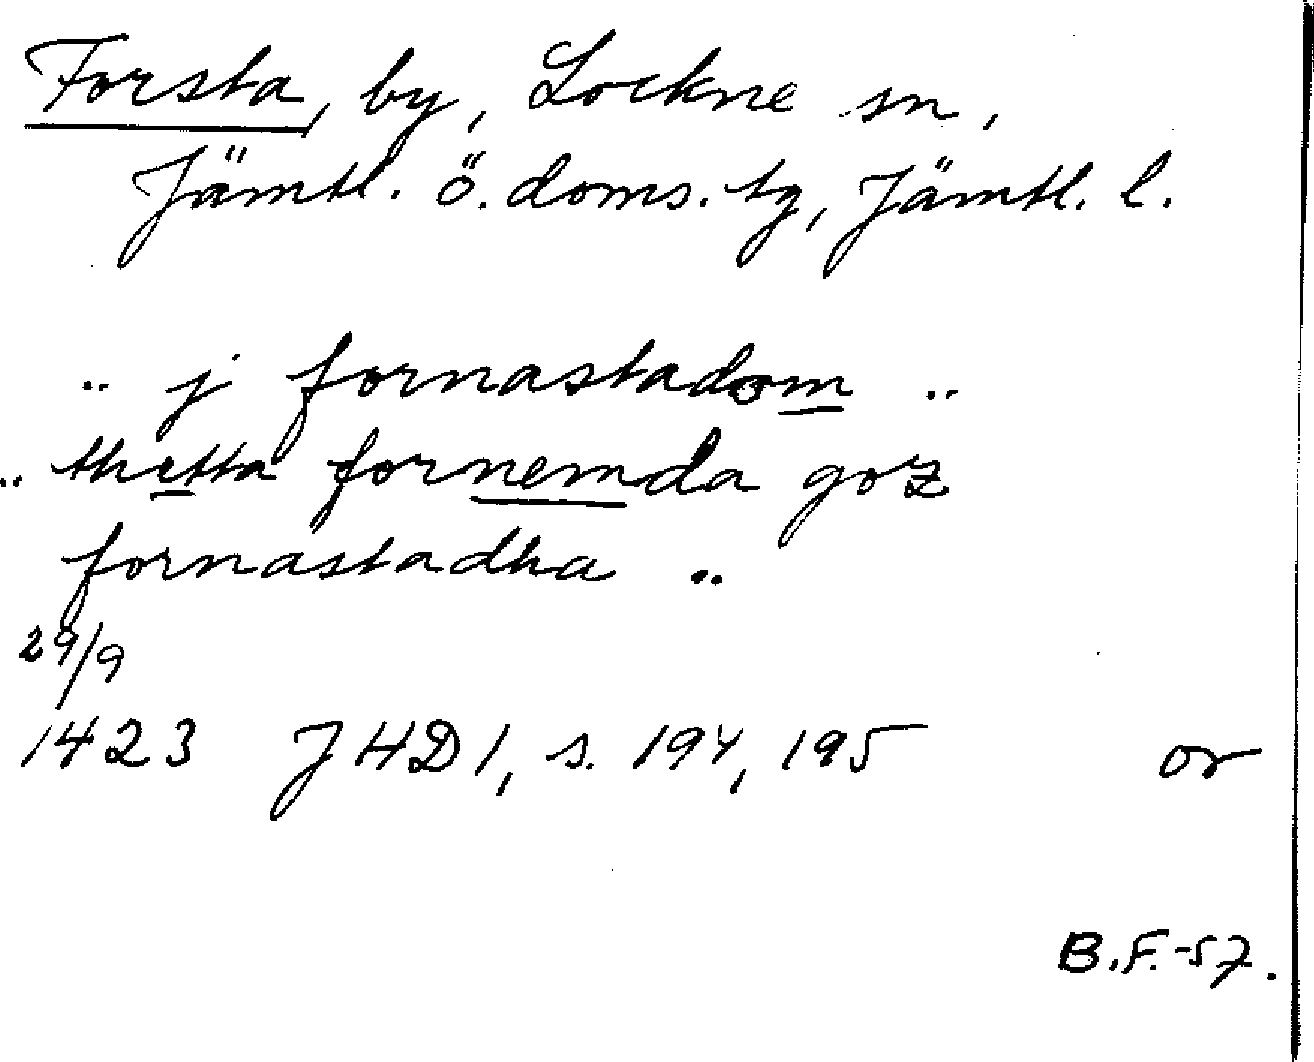 Forsta, by, Lockne sn,
Jämtl. ö. doms. tg, Jämtl. l.
.. j fornastadom ..
.. thetta fornemda goz
fornastadha ..
29/9
1423 JHD 1, s. 194, 195 or
B.F.-57.